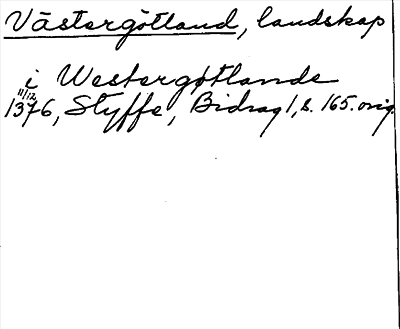 Västergötland, landskap
i Westergøtlande
11/12
1376, Styffe, Bidrag 1, s. 165. orig.